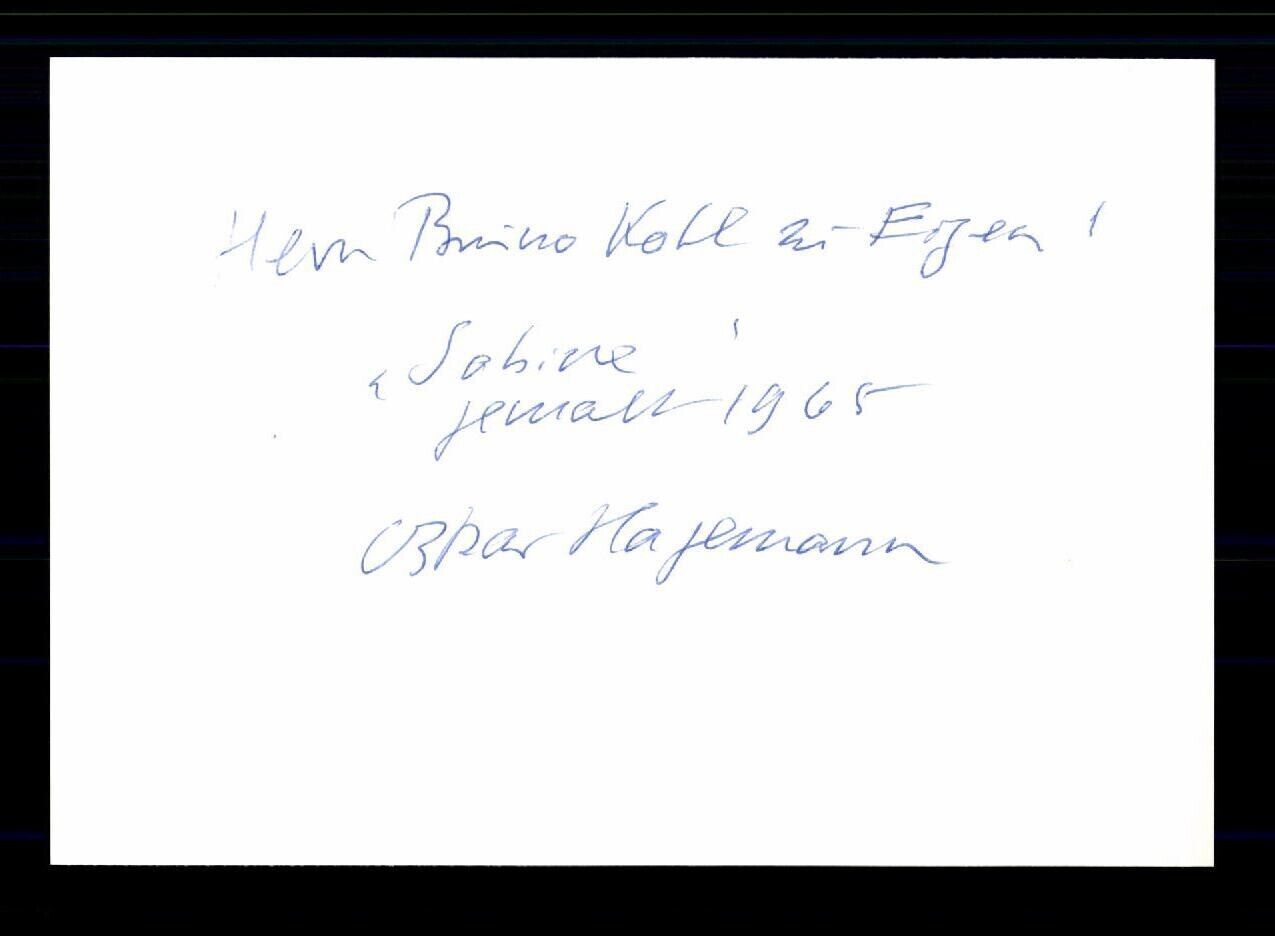 Herrn Bruno Kohl zu Eigen!
„Sabine"
gemalt 1965
Oskar Hagemann